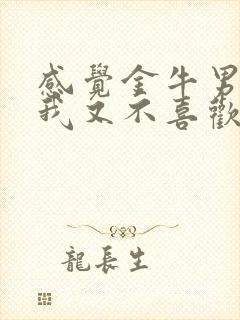 感覺金牛男
我又不喜歡
龍長生